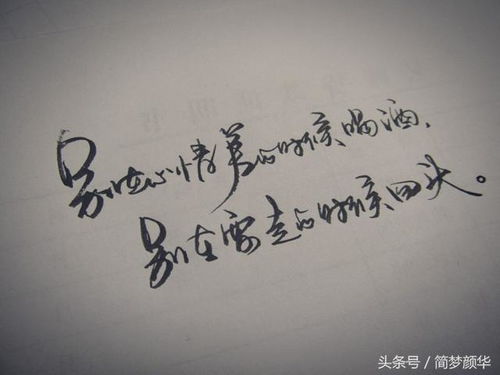 别在心情差的时候喝酒、
别在需走的时候回头。
头条号 / 简梦颜华